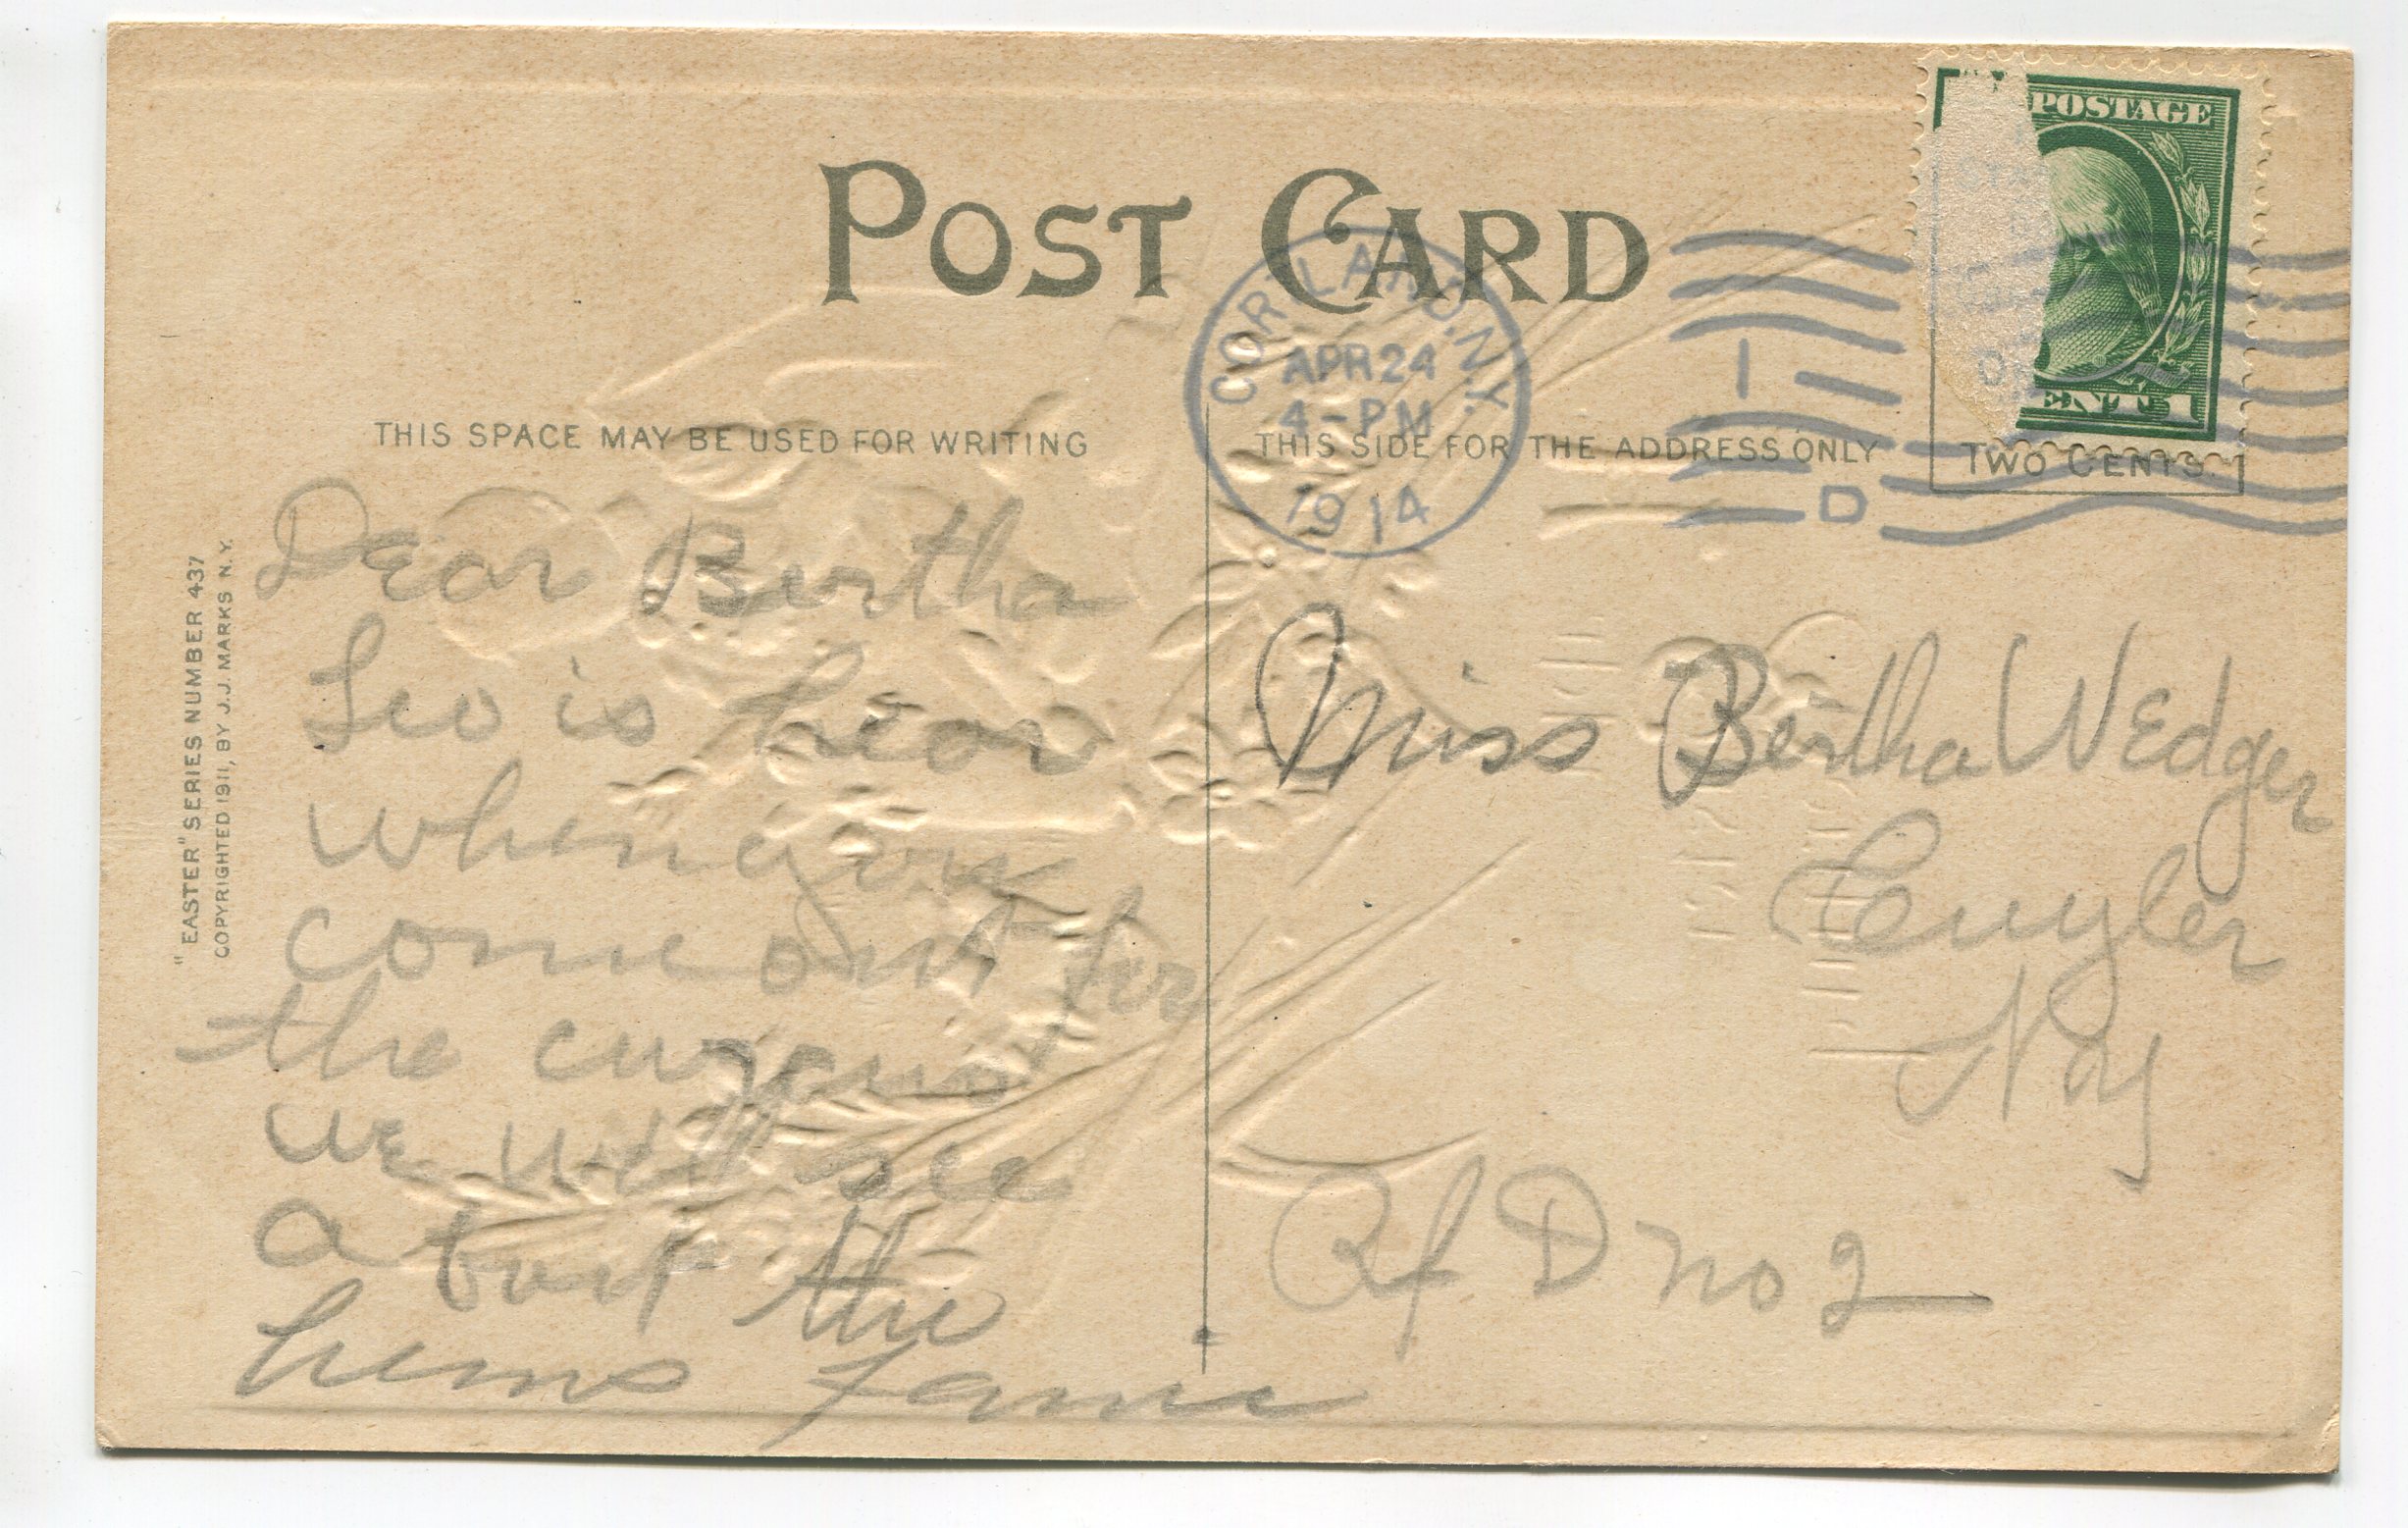 POST CARD
POSTAGE
ENT 1
CORTLAND. N.Y.
APR 24
4-PM
1914
1
D
THIS SPACE MAY BE USED FOR WRITING
THIS SIDE FOR THE ADDRESS ONLY
TWO CENTS.
"EASTER" SERIES NUMBER 437
COPYRIGHTED 1911, BY J.J. MARKS N.Y.
Dear Bertha
Leo is hear
when you
come out for
the
we will see
a bout the
hems
Miss Bertha Wedger
Cuyler
N Y
Rf D no 2